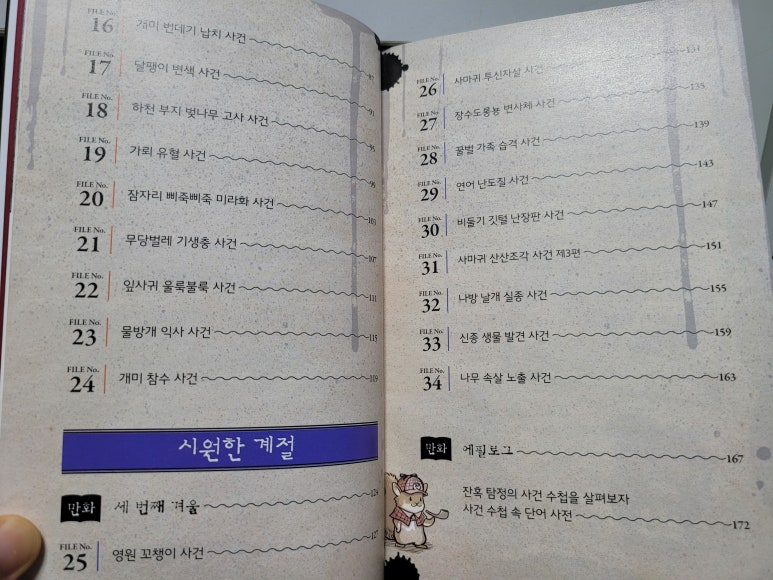 FILE No.
16 개미 번데기 납치 사건 87
FILE No.
17 달팽이 변색 사건 91
FILE No.
18 하천 부지 벚나무 고사 사건 95
FILE No.
19 가뢰 유혈 사건 99
FILE No.
20 잠자리 삐죽삐죽 미라화 사건 103
FILE No.
21 무당벌레 기생충 사건 107
FILE No.
22 잎사귀 울룩불룩 사건 111
FILE No.
23 물방개 익사 사건 115
FILE No.
24 개미 참수 사건 119
시원한 계절
만화 세 번째 겨울 124
FILE No.
25 영원 꼬챙이 사건 127
FILE No.
26 사마귀 투신자살 사건 131
FILE No.
27 장수도롱뇽 변사체 사건 135
FILE No.
28 꿀벌 가족 습격 사건 139
FILE No.
29 연어 난도질 사건 143
FILE No.
30 비둘기 깃털 난장판 사건 147
FILE No.
31 사마귀 산산조각 사건 제3편 151
FILE No.
32 나방 날개 실종 사건 155
FILE No.
33 신종 생물 발견 사건 159
FILE No.
34 나무 속살 노출 사건 163
만화 에필로그 167
잔혹 탐정의 사건 수첩을 살펴보자
사건 수첩 속 단어 사전 172